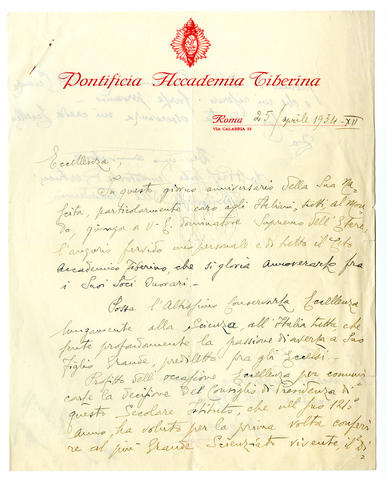 Pontificia Accademia Tiberina
Roma 25/aprile 1934-XII
VIA CALABRIA 32
Eccellenza,
In questo giorno anniversario della Sua Na-
scita, particolarmente caro agli Italiani, tutti, al Mon-
do, giunga a V. E. dominatore Supremo dell'Etere
l'augurio fervido mio personale e di tutto il Ceto
Accademico Tiberino, che si gloria annoverarLa fra
i Suoi Soci Onorari.
Possa l'Altissimo ConservarLa Eccellenza
lungamente alla Scienza, all'Italia tutta che
sente profondamente la passione di averLa a Suo
Figlio Grande, prediletto fra gli Eccelsi.
Profitto dell'occasione Eccellenza per comuni
carLe la decisione del Consiglio di Presidenza di
questo Secolare Istituto, che nel suo 121°
anno, ha voluto per la prima volta conferi
re al più Grande Scienziato vivente il "Di